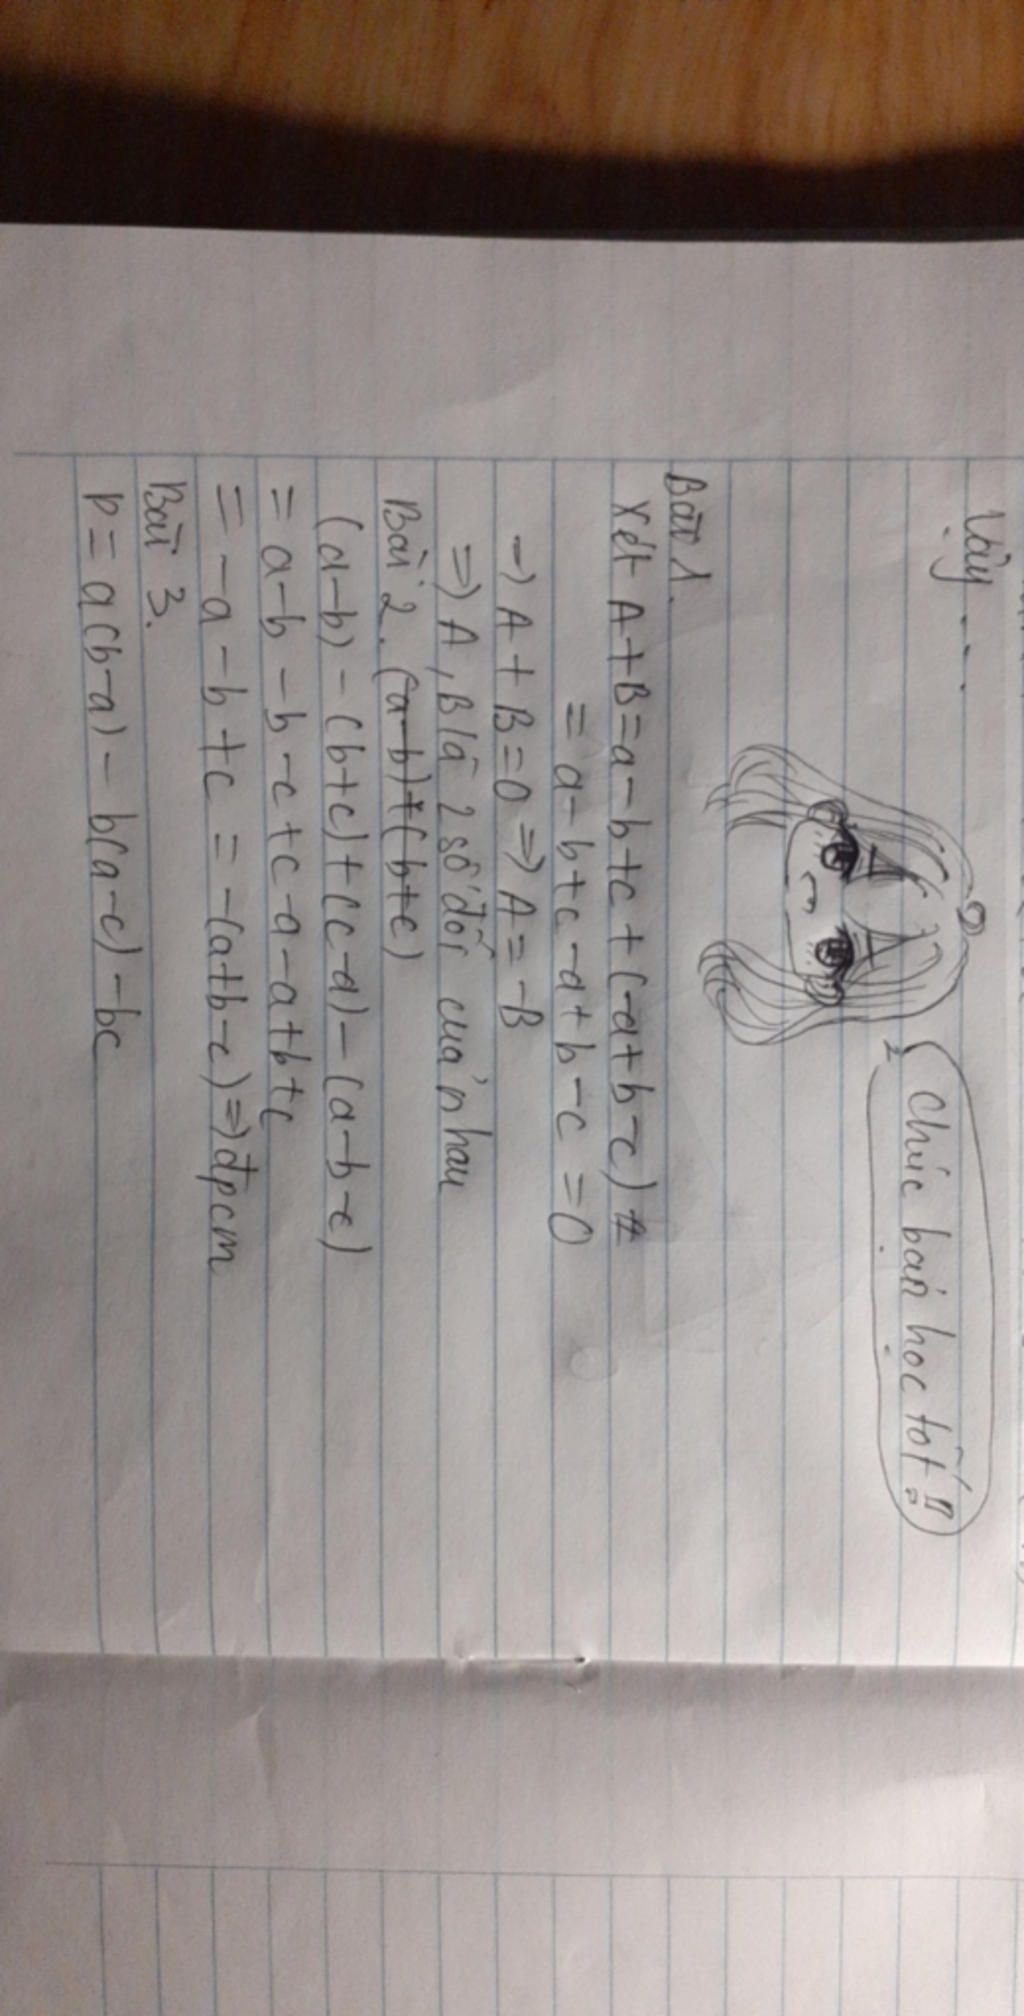 Vậy ....
Chúc bạn học tốt!!
Bài 1.
Xét A+B=a-b+c+(-a+b-c)
= a-b+c-a+b-c=0
→ A+B=0 ⇒ A=-B
⇒ A, B là 2 số đối của nhau
Bài 2. (a-b)+(b+c)
(a-b)-(b+c)+(c-a)-(a-b-c)
= a-b-b-c+c-a-a+b+c
= -a-b+c = -(a+b-c) ⇒ đpcm
Bài 3.
P= a(b-a)-b(a-c)-bc